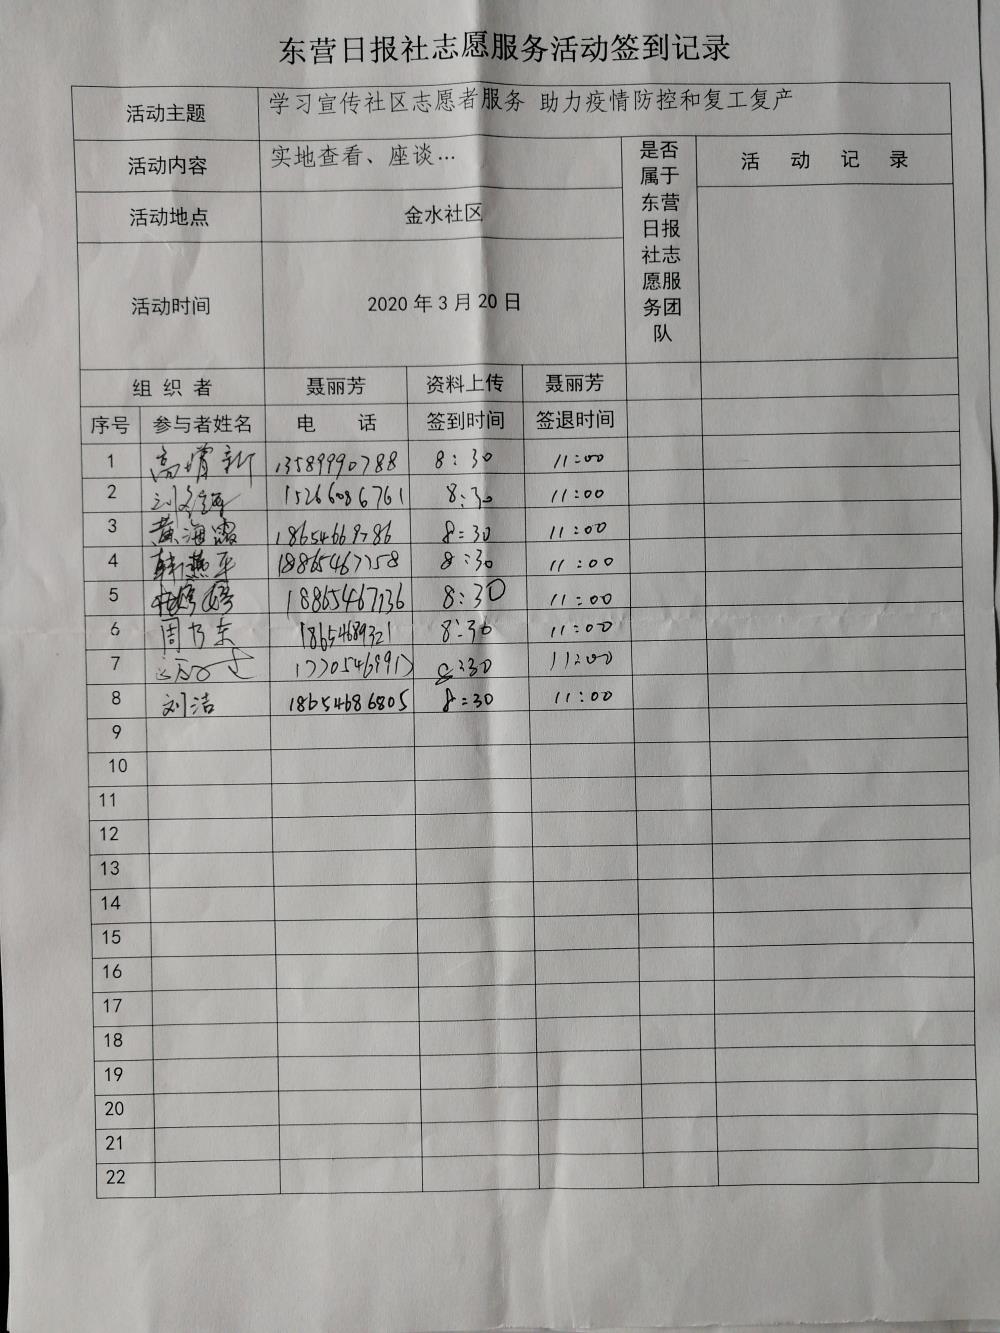 东营日报社志愿服务活动签到记录
活动主题 学习宣传社区志愿者服务 助力疫情防控和复工复产
活动内容 实地查看、座谈…
是否属于东营日报社志愿服务团队
活 动 记 录
活动地点 金水社区
活动时间 2020年3月20日
组 织 者 聂丽芳 资料上传 聂丽芳
序号 参与者姓名 电 话 签到时间 签退时间
1 高 新 13589990788 8:30 11:00
2 刘 15266086761 8:30 11:00
3 黄海霞 18654669786 8:30 11:00
4 韩燕平 18865467758 8:30 11:00
5 婷婷 18865467736 8:30 11:00
6 周乃东 18654689321 8:30 11:00
7 8:30 11:00
8 刘洁 18654686805 8:30 11:00
9
10
11
12
13
14
15
16
17
18
19
20
21
22